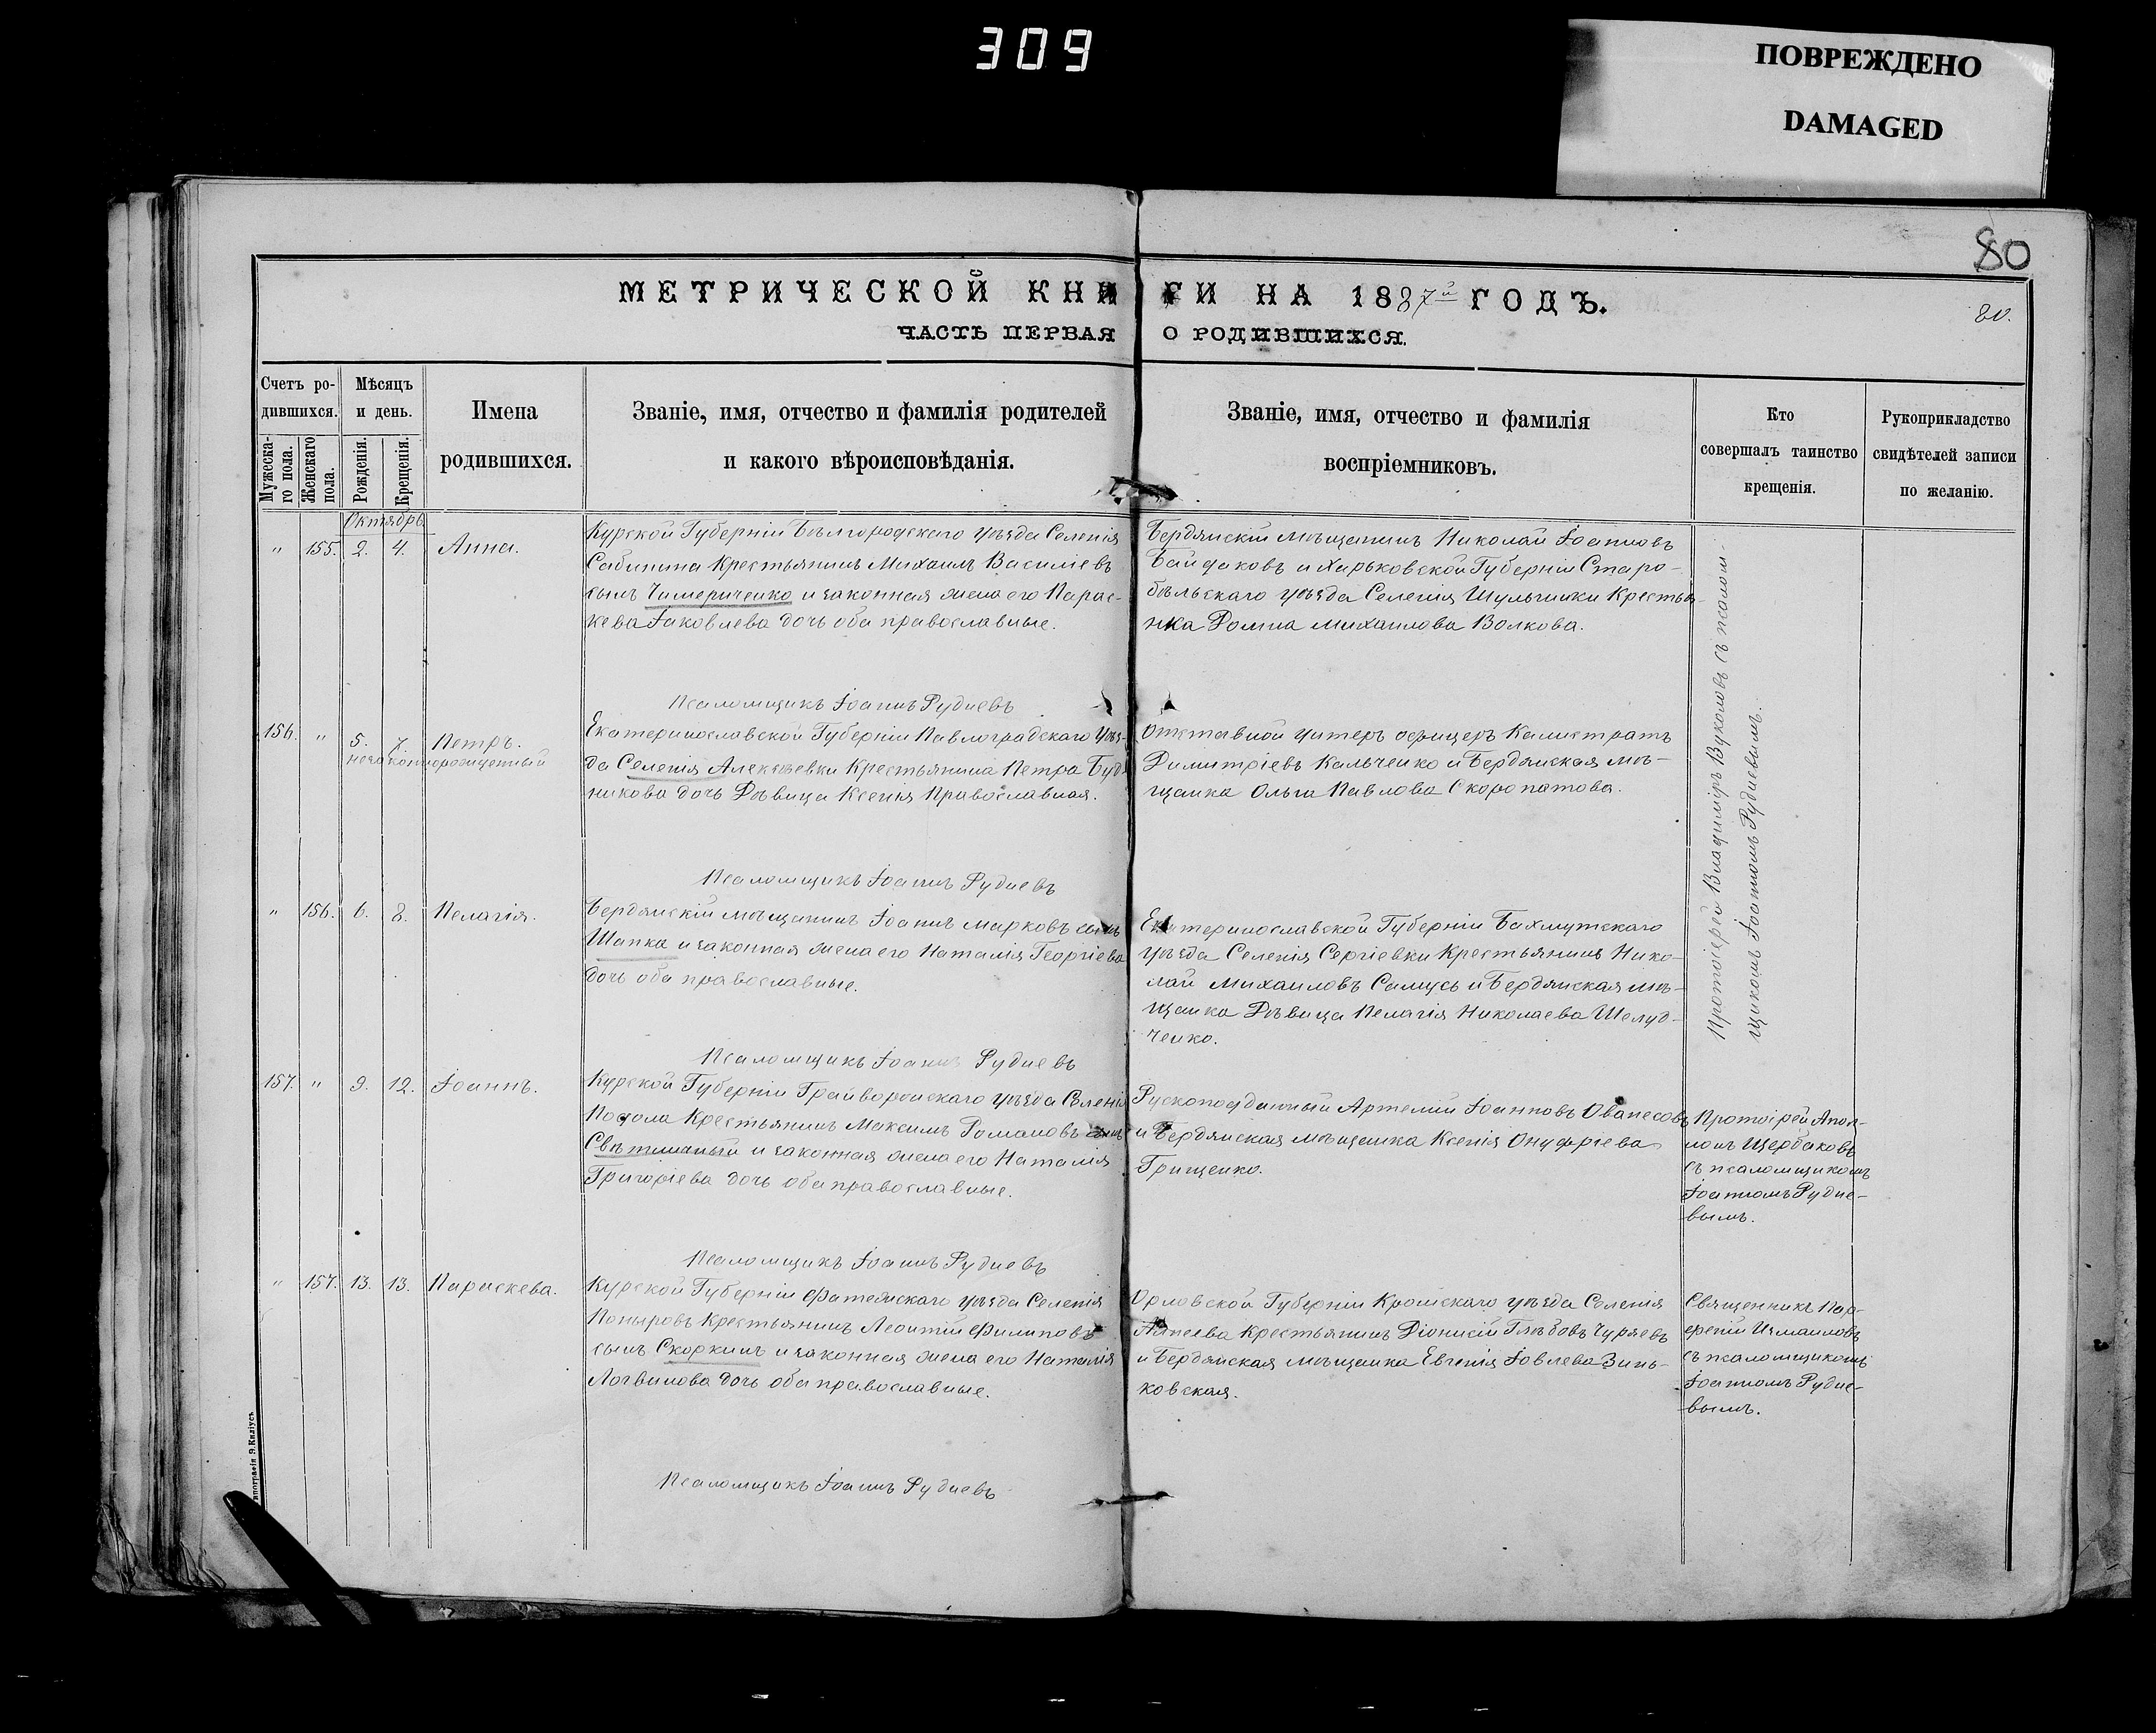 309
ПОВРЕЖДЕНО
DAMAGED
80
МЕТРИЧЕСКОЙ КНИГИ НА 1887й ГОДЪ.
80.
ЧАСТЬ ПЕРВАЯ О РОДИВШИХСЯ.
Счетъ ро-
дившихся.
Мужеска-
го пола.
Женскаго
пола.
Мѣсяцъ
и день.
Рожденія.
Крещенія.
Имена
родившихся.
Званіе, имя, отчество и фамилія родителей
и какого вѣроисповѣданія.
Званіе, имя, отчество и фамилія
воспріемниковъ.
Кто
совершалъ таинство
крещенія.
Рукоприкладство
свидѣтелей записи
по желанію.
Октябрь
" 155. 2. 4. Анна.
Курской Губерніи Бѣлгородскаго уѣзда Селенія
Сабинина Крестьянинъ Михаилъ Василіевъ
сынъ Чимериченко и законная жена его Парас-
кева Іаковлева дочь оба православные.
Бердянскій мѣщанинъ Николай Іоанновъ
Байдаковъ и Харьковской Губерніи Старо-
бѣльскаго уѣзда Селенія Шульгинки Крестья-
нка Домна Михаилова Волкова.
Протоіерей Владиміръ Вуколовъ съ псалом-
щикомъ Іоанномъ Рудневымъ.
Псаломщикъ Іоаннъ Рудневъ
156. " 5. 7. Петръ.
незаконнорожденный
Екатеринославской Губерніи Павлоградскаго уѣз-
да Селенія Алексѣевки Крестьянина Петра Буд-
никова дочь Дѣвица Ксенія Православная.
Отставной унтеръ офицеръ Калистратъ
Димитріевъ Кальченко и Бердянская мѣ-
щанка Ольга Павлова Скоропатова.
Псаломщикъ Іоаннъ Рудневъ
" 156. 6. 8. Пелагія.
Бердянскій мѣщанинъ Іоаннъ Марковъ сынъ
Шапка и законная жена его Наталія Георгіева
дочь оба православные.
Екатеринославской Губерніи Бахмутскаго
уѣзда Селенія Сергіевки Крестьянинъ Нико-
лай Михаиловъ Самусь и Бердянская мѣ-
щанка Дѣвица Пелагія Николаева Шелуд-
ченко.
Псаломщикъ Іоаннъ Рудневъ
157. " 9. 12. Іоаннъ.
Курской Губерніи Грайворонскаго уѣзда Селенія
Подола Крестьянинъ Максимъ Романовъ сынъ
Свѣтличный и законная жена его Наталія
Григоріева дочь оба православные.
Рускоподданный Артемій Іоанновъ Ованесовъ
и Бердянская мѣщанка Ксенія Онуфріева
Грищенко.
Протоірей Апол-
лонъ Щербаковъ
съ псаломщикомъ
Іоанномъ Рудне-
вымъ.
Псаломщикъ Іоаннъ Рудневъ
" 157. 13. 13. Параскева.
Курской Губерніи Фатежскаго уѣзда Селенія
Поныровъ Крестьянинъ Леонтій Филиповъ
сынъ Скоркинъ и законная жена его Наталія
Логвинова дочь оба православные.
Орловской Губерніи Кромскаго уѣзда Селенія
Крестьянинъ Діонисій Глѣбовъ Чуряевъ
и Бердянская мѣщанка Евгенія Іовлева Зинь-
ковская.
Священникъ Пар-
ѳеній Измаиловъ
съ псаломщикомъ
Іоанномъ Рудне-
вымъ.
Псаломщикъ Іоаннъ Рудневъ
Типографія Э. Киліусъ